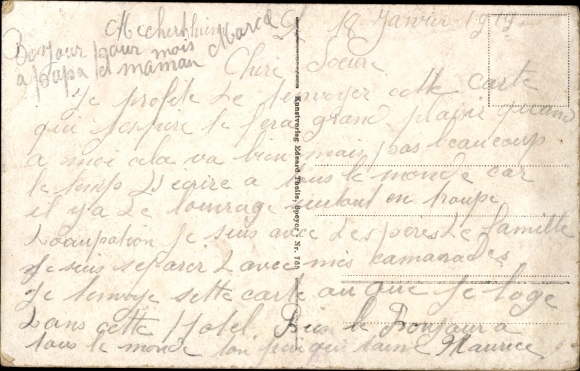 Mechersheim Le 19 Janvier 1919
Bonjour pour mois
a papa et maman Marcel
Chere Soeur
Je profite de tenvoyer cette carte
qui jespere te fera grand plaisir quand
a moi cela va bien mais pas beaucoup
le temp d'ecrire a tous le monde car
il y a de louvrage surtout en troupe
doccupation Je suis avec des peres de famille
Je suis separer davec mes camarades
Je tenvoye sette carte au que je loge
dans cette Hotel Bien le Bonjour a
tous le monde ton qui taime Maurice
Kunstverlag Eduard Thelle, Speyer · Nr. 765